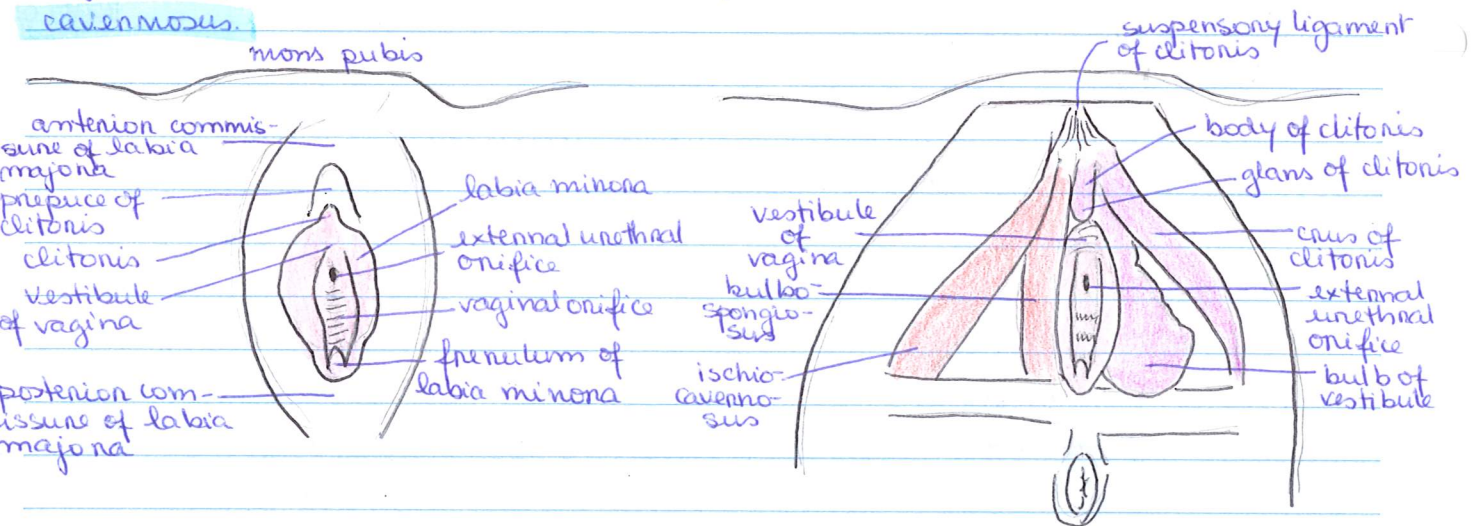 cavernosus.
mons pubis
anterior commis-
sure of labia
majora
prepuce of
clitoris
clitoris
vestibule
of vagina
posterior com-
issure of labia
majora
labia minora
external urethral
orifice
vaginal orifice
frenulum of
labia minora
suspensory ligament
of clitoris
body of clitoris
glans of clitoris
vestibule
of
vagina
bulbo-
spongio-
sus
ischio-
caverno-
sus
crus of
clitoris
external
urethral
orifice
bulb of
vestibule